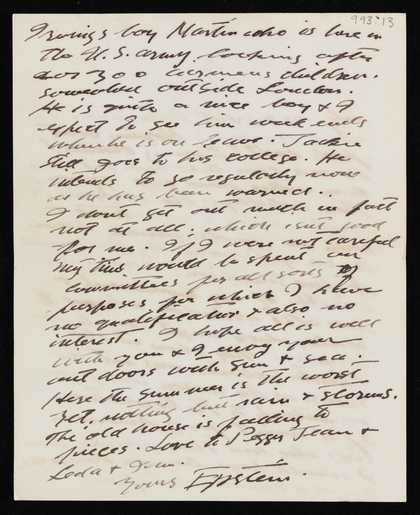 993.13
Irving's boy Martin who is here in
the U.S. army looking after
300 airmens children.
somewhere outside London.
He is quite a nice boy & I
expect to see him week ends
when he is on leave. Jackie
still goes to his college. He
intends to go regularly now
as he has been warned..
I dont get out much in fact
not at all, which isnt good
for me. If I were not careful
my time would be spent on
committees for all sorts of
purposes for which I have
no qualification & also no
interest. I hope all is well
with you & I envy your
out doors with sun & sea.
Here the summer is the worst
yet, nothing but rain & storms.
The old house is falling to
pieces. Love to Peggy Jean &
Leda &
Yours Epstein.